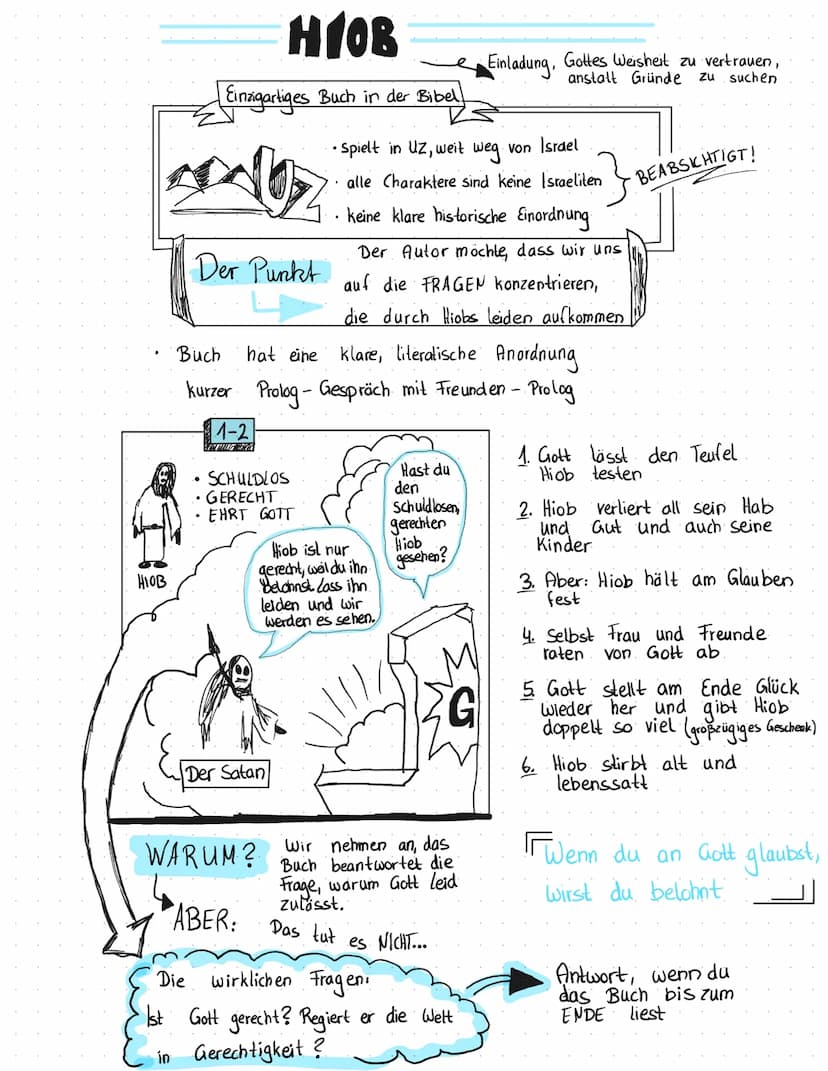 HIOB
Einladung, Gottes Weisheit zu vertrauen,
anstatt Gründe zu suchen
Einzigartiges Buch in der Bibel
UZ
• spielt in UZ, weit weg von Israel
• alle Charaktere sind keine Israeliten
• keine klare historische Einordnung
BEABSICHTIGT!
Der Punkt
Der Autor möchte, dass wir uns
auf die FRAGEN konzentrieren,
die durch Hiobs leiden aufkommen
• Buch hat eine klare, literalische Anordnung
kurzer Prolog - Gespräch mit Freunden - Prolog
1-2
HIOB
• SCHULDLOS
• GERECHT
• EHRT GOTT
Hast du
den
schuldlosen,
gerechten
Hiob
gesehen?
Hiob ist nur
gerecht, weil du ihn
belohnst. Lass ihn
leiden und wir
werden es sehen.
G
Der Satan
1. Gott lässt den Teufel
Hiob testen
2. Hiob verliert all sein Hab
und Gut und auch seine
Kinder
3. Aber: Hiob hält am Glauben
fest
4. Selbst Frau und Freunde
raten von Gott ab
5 Gott stellt am Ende Glück
wieder her und gibt Hiob
doppelt so viel (großzügiges Geschenk)
6. Hiob stirbt alt und
lebenssatt
WARUM?
Wir nehmen an, das
Buch beantwortet die
Frage, warum Gott Leid
zulässt.
ABER:
Das tut es NICHT...
Wenn du an Gott glaubst,
wirst du belohnt
Die wirklichen Fragen:
Ist Gott gerecht? Regiert er die Welt
in Gerechtigkeit?
Antwort, wenn du
das Buch bis zum
ENDE liest